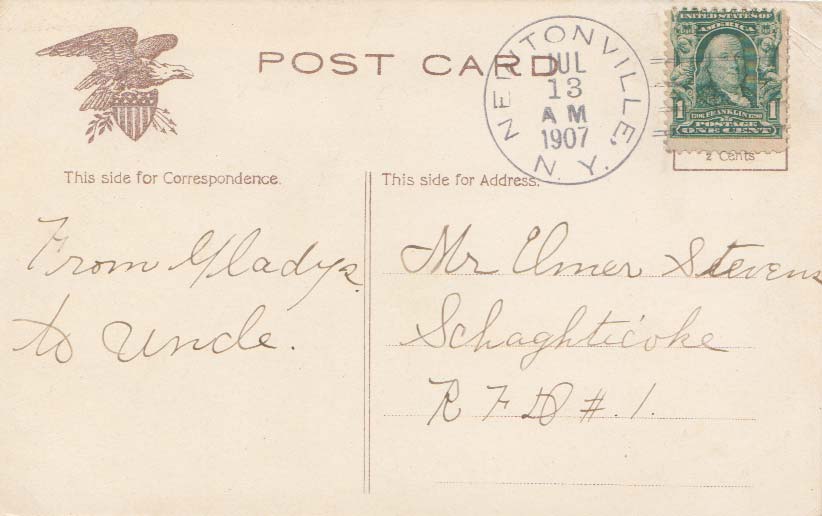 POST CARD
NEWTONVILLE, N.Y.
JUL
13
A M
1907
UNITED STATES OF
AMERICA
1 FRANKLIN 1
POSTAGE
ONE CENT
2 Cents
This side for Correspondence.
This side for Address.
From Gladys.
to Uncle.
Mr Elmer Stevens
Schaghticoke
R F D #. 1.